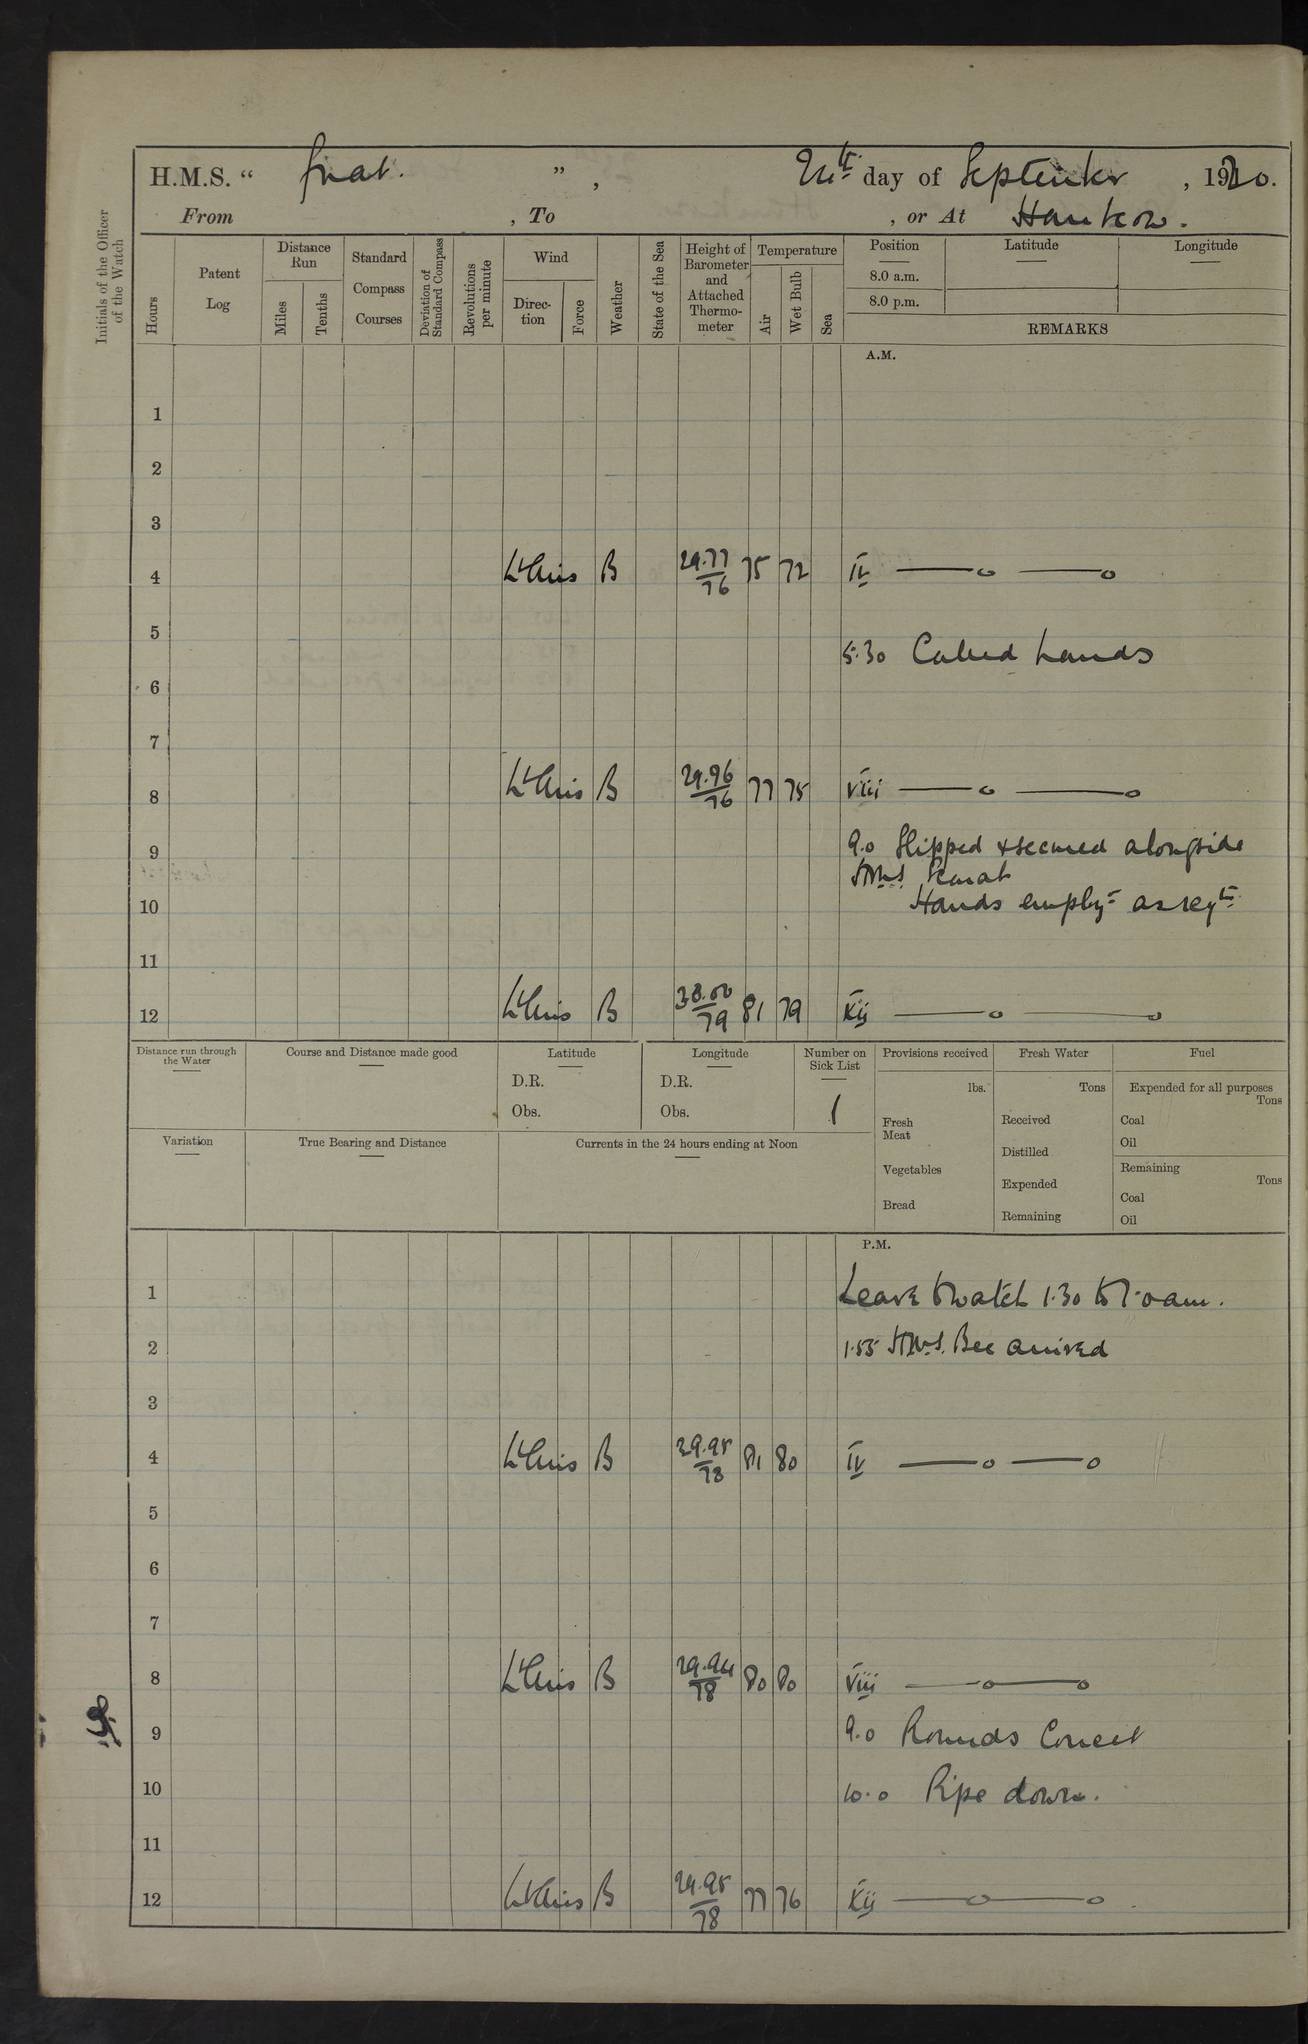 H.M.S. " Gnat. " , 24th day of September , 1920.
From , To , or At Hankow.
Initials of the Officer of the Watch
Hours
Patent Log
Distance Run
Miles
Tenths
Standard Compass Courses
Deviation of Standard Compass
Revolutions per minute
Wind
Direc-tion
Force
Weather
State of the Sea
Height of Barometer and Attached Thermo-meter
Temperature
Air
Wet Bulb
Sea
Position
Latitude
Longitude
8.0 a.m.
8.0 p.m.
REMARKS
A.M.
1
2
3
4 Lt Airs B 29.77/76 75 72 IV —o —o
5
5.30 Called hands
6
7
8 Lt Airs B 29.96/76 77 75 VIII —o —o
9 9.0 Slipped & secured alongside
HMS
10 Hands employd as reqte
11
12 Lt Airs B 30.00/79 81 79 XII —o —o
Distance run through the Water
Course and Distance made good
Latitude
D.R.
Obs.
Longitude
D.R.
Obs.
Number on Sick List
1
Provisions received
lbs.
Fresh Meat
Vegetables
Bread
Fresh Water
Tons
Received
Distilled
Expended
Remaining
Fuel
Expended for all purposes
Tons
Coal
Oil
Remaining
Tons
Coal
Oil
Variation
True Bearing and Distance
Currents in the 24 hours ending at Noon
P.M.
1 Leave to watch 1.30 to 7.0 am.
2 1.55 HMS. Bee arrived
3
4 Lt Airs B 29.95/78 81 80 IV —o —o
5
6
7
8 Lt Airs B 29.94/78 80 80 VIII —o —o
9 9.0 Rounds Correct
10 10.0 Pipe down.
11
12 Lt Airs B 29.95/78 77 76 XII —o —o